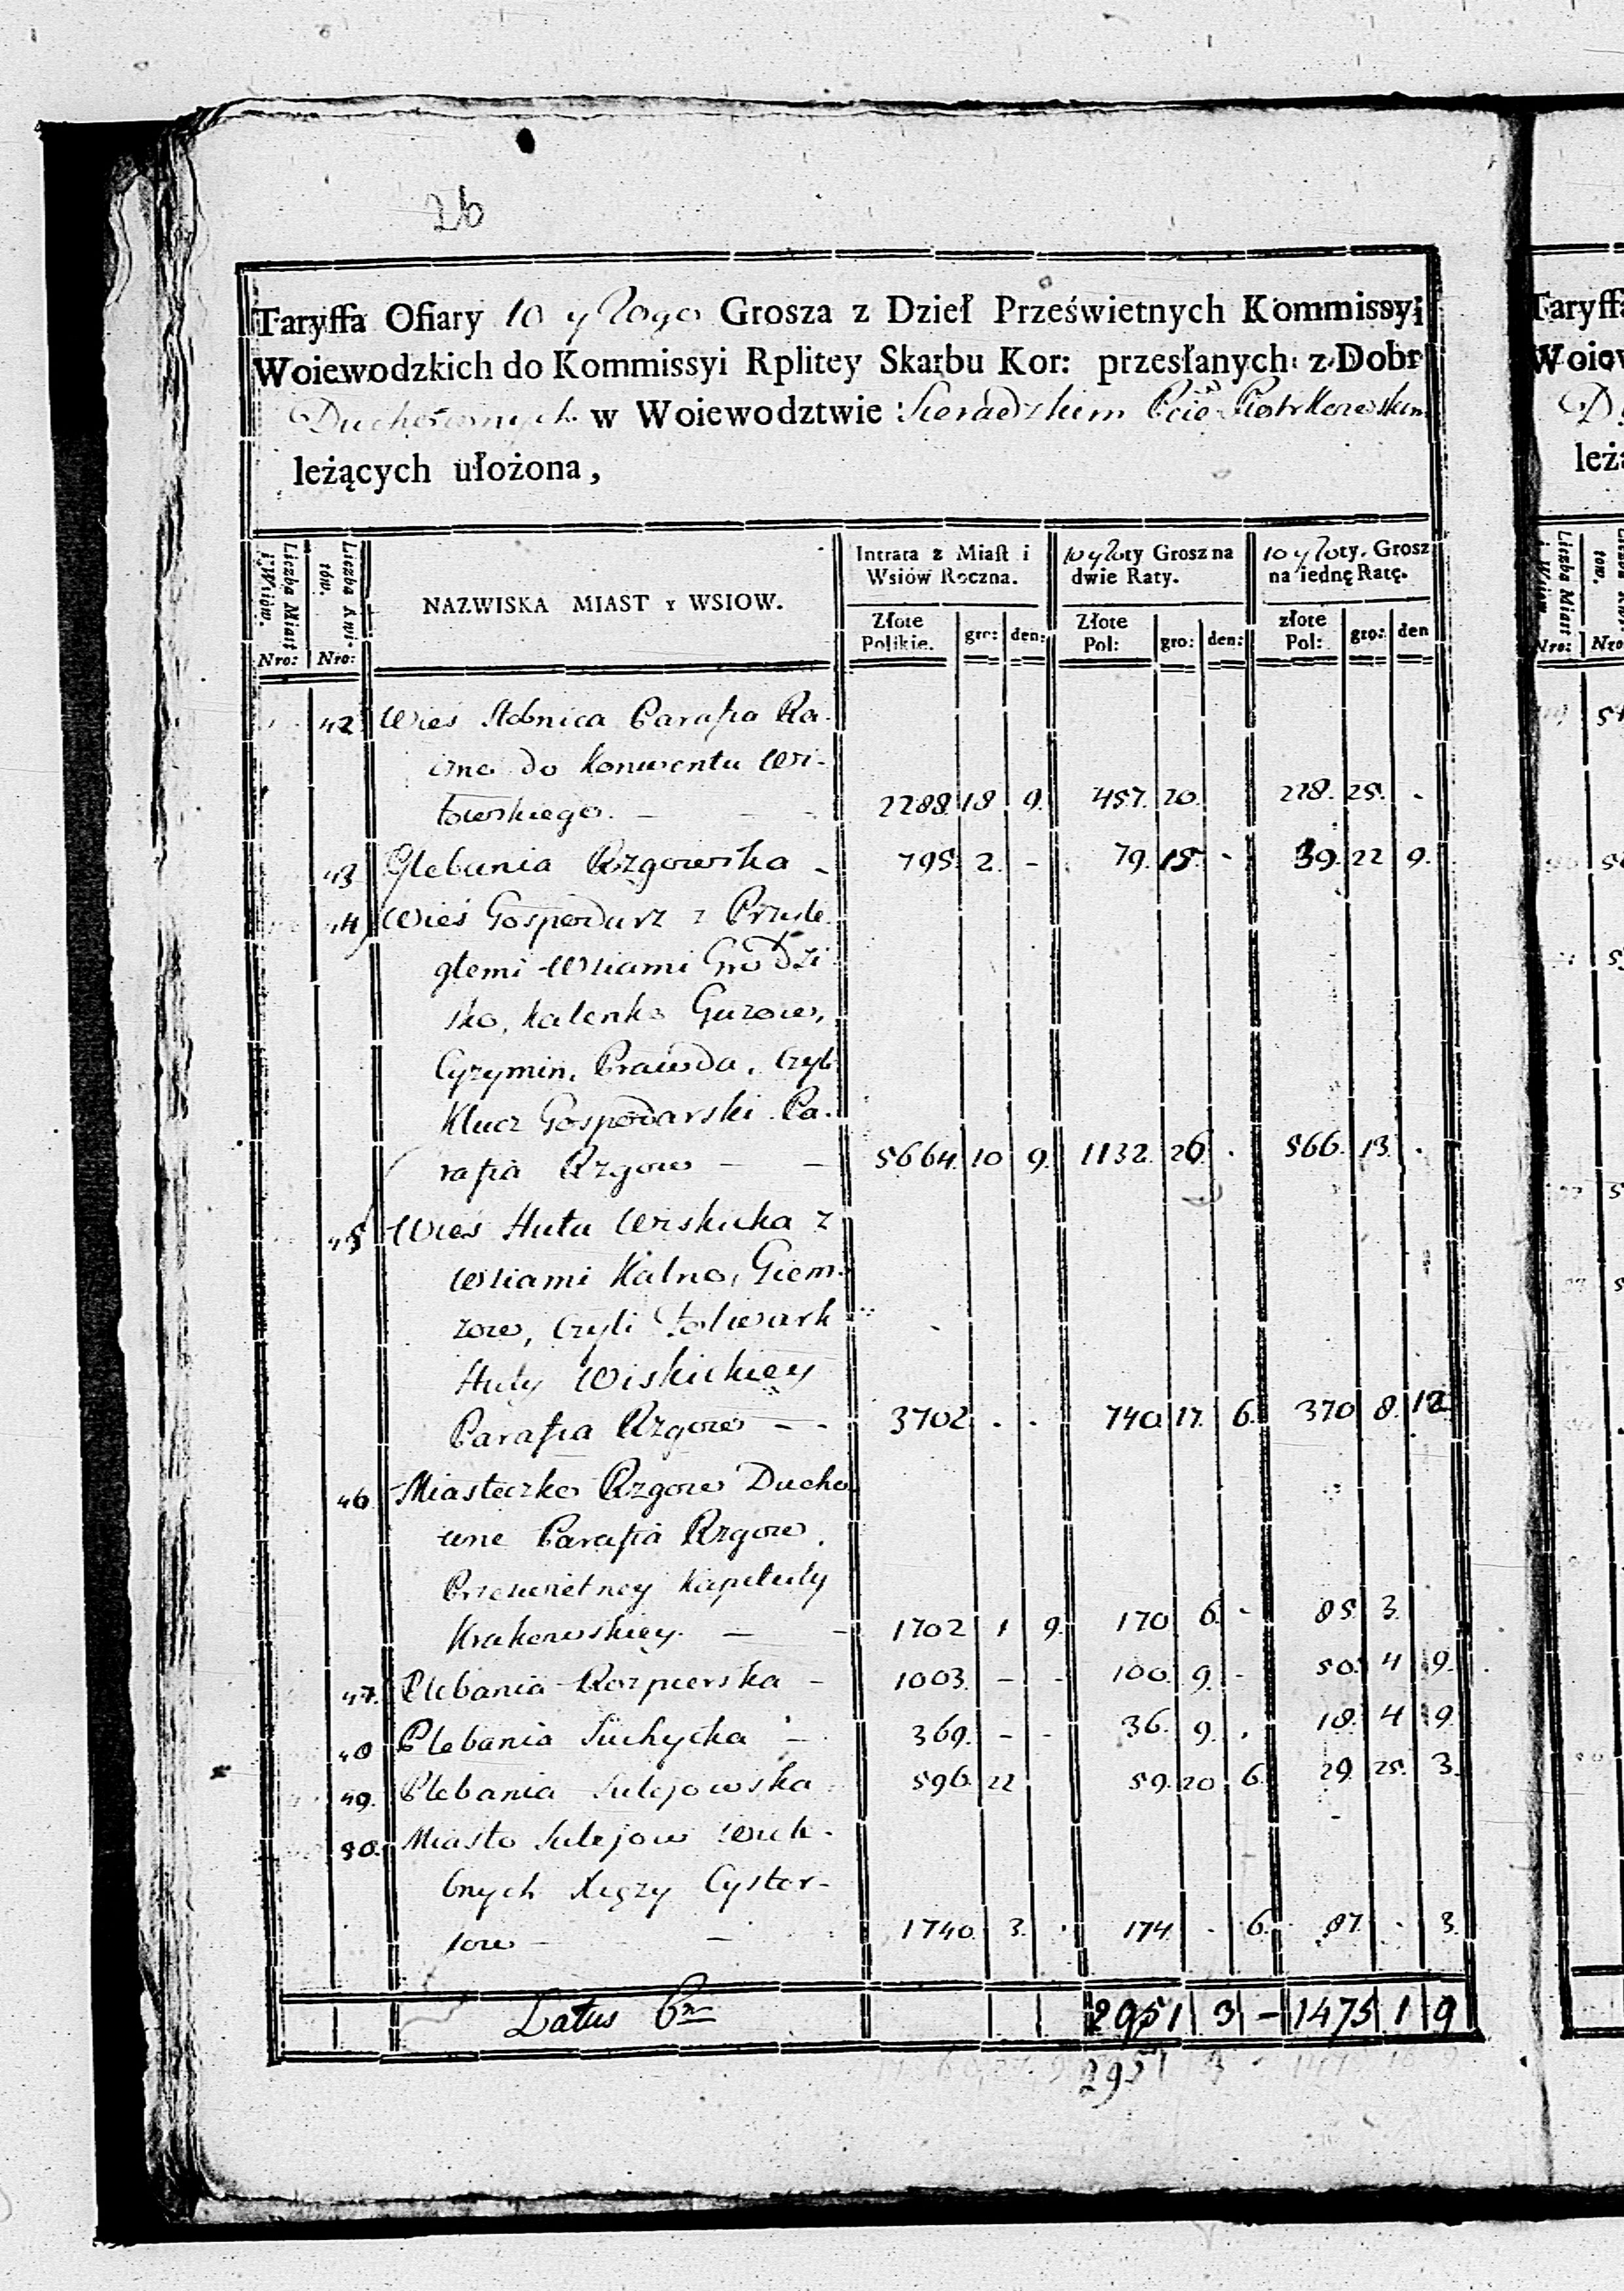 26
Taryffa Ofiary 10 y 20go Grosza z Dzieł Prześwietnych Kommissyi
Woiewodzkich do Kommissyi Rplitey Skarbu Kor: przesłanych z Dobr
Duchownych w Woiewodztwie Sieradzkim Pcie Piotrkowskim
leżących ułożona,
Liczba Miast i Wsiow. Nro:
Liczba Kwitow. Nro:
NAZWISKA MIAST Y WSIOW.
Intrata z Miast i Wsiów Roczna.
10 y 20ty Grosz na dwie Raty.
10 y 20ty. Grosz na iednę Ratę.
Złote Polskie. gro: den: Złote Pol: gro: den: złote Pol: gro: den
42 Wieś Stobnica Parafia Rą-
czno do Konwentu Wi-
towskiego. — 2288. 18 9. 457. 20. 228. 25. -
43 Plebania Rzgowska - 795. 2. - 79. 15. - 39. 22 9.
44 Wieś Gospodarz z Przyle
głemi Wsiami Grodzi
sko, Kalenko Guzow,
Cyzymin, Prawda, Czyli
Klucz Gospodarski Pa-
rafia Rzgow — — 5664. 10 9. 1132. 26. . 566. 13. .
45 Wieś Huta Wiskicka z
Wsiami Kalno, Giem-
zow, Czyli Folwark
Huty Wiskickiey
Parafia Rzgow - - 3702. . . 740. 17. 6. 370 8. 12
46. Miasteczko Rzgow Ducho
wne Parafia Rzgow.
Przeswietney Kapituły
Krakowskiey. — - 1702 1 9. 170 6. - 85. 3.
47. Plebania Rozpierska - 1003. - - 100. 9. - 50. 4 9.
48 Plebania Suchycka - 369. - - 36. 9. . 18. 4 9.
49. Plebania Sulejowska 596. 22 59. 20. 6. 29. 25. 3.
50. Miasto Sulejow Wiele-
bnych Xięzy Cyster-
sow — — 1740. 3. . 174 - 6. 87. - 3.
Latus 2951 3 - 1475 1 9
2951 3 -
Taryffa
Woiew
D
leżą